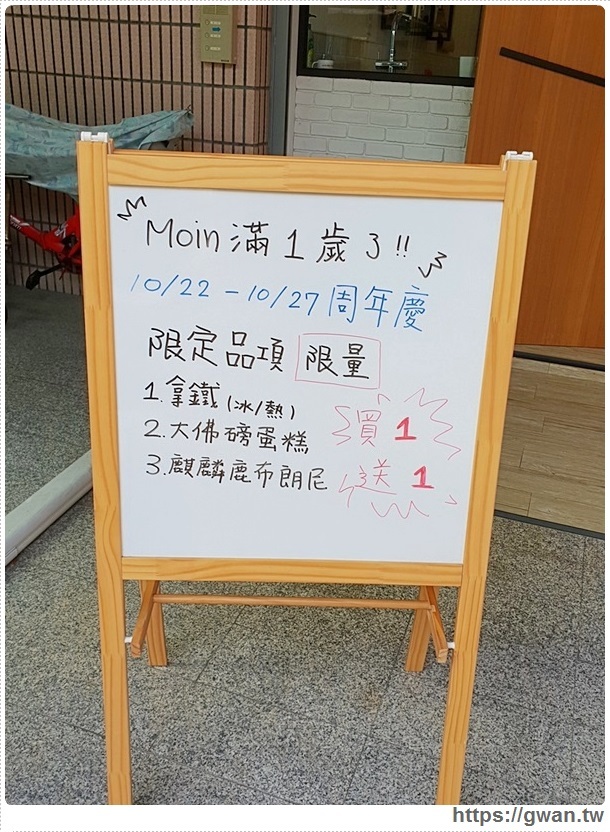 Moin 滿 1 歲了!!
10/22 - 10/27 周年慶
限定品項 限量
1. 拿鐵 (冰/熱)
2. 大佛磅蛋糕
3. 麒麟鹿布朗尼
買 1
送 1
https://gwan.tw